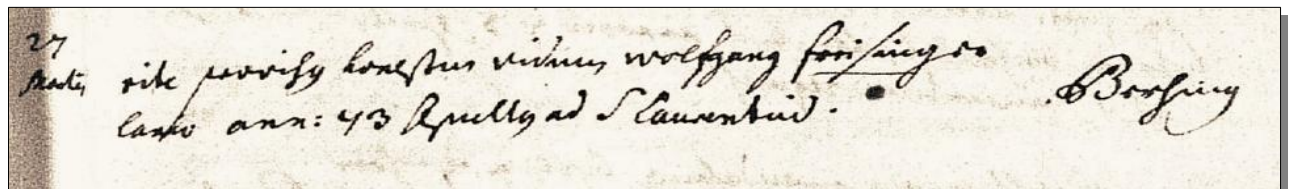 27
Martii rite provisus honestus viduus wolfgang freisinger
ann: 73 sepultus ad S Laurentiu. Bersing